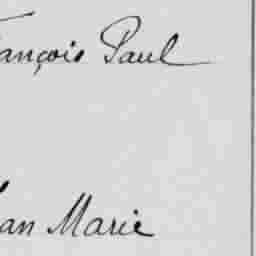 ançois Paul
an Marie